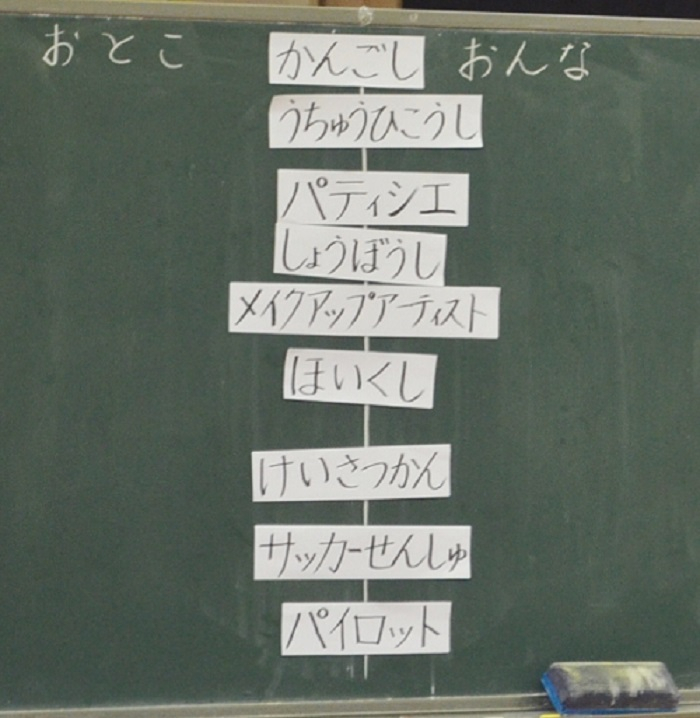 おとこ かんごし おんな
うちゅうひこうし
パティシエ
しょうぼうし
メイクアップアーティスト
ほいくし
けいさつかん
サッカーせんしゅ
パイロット